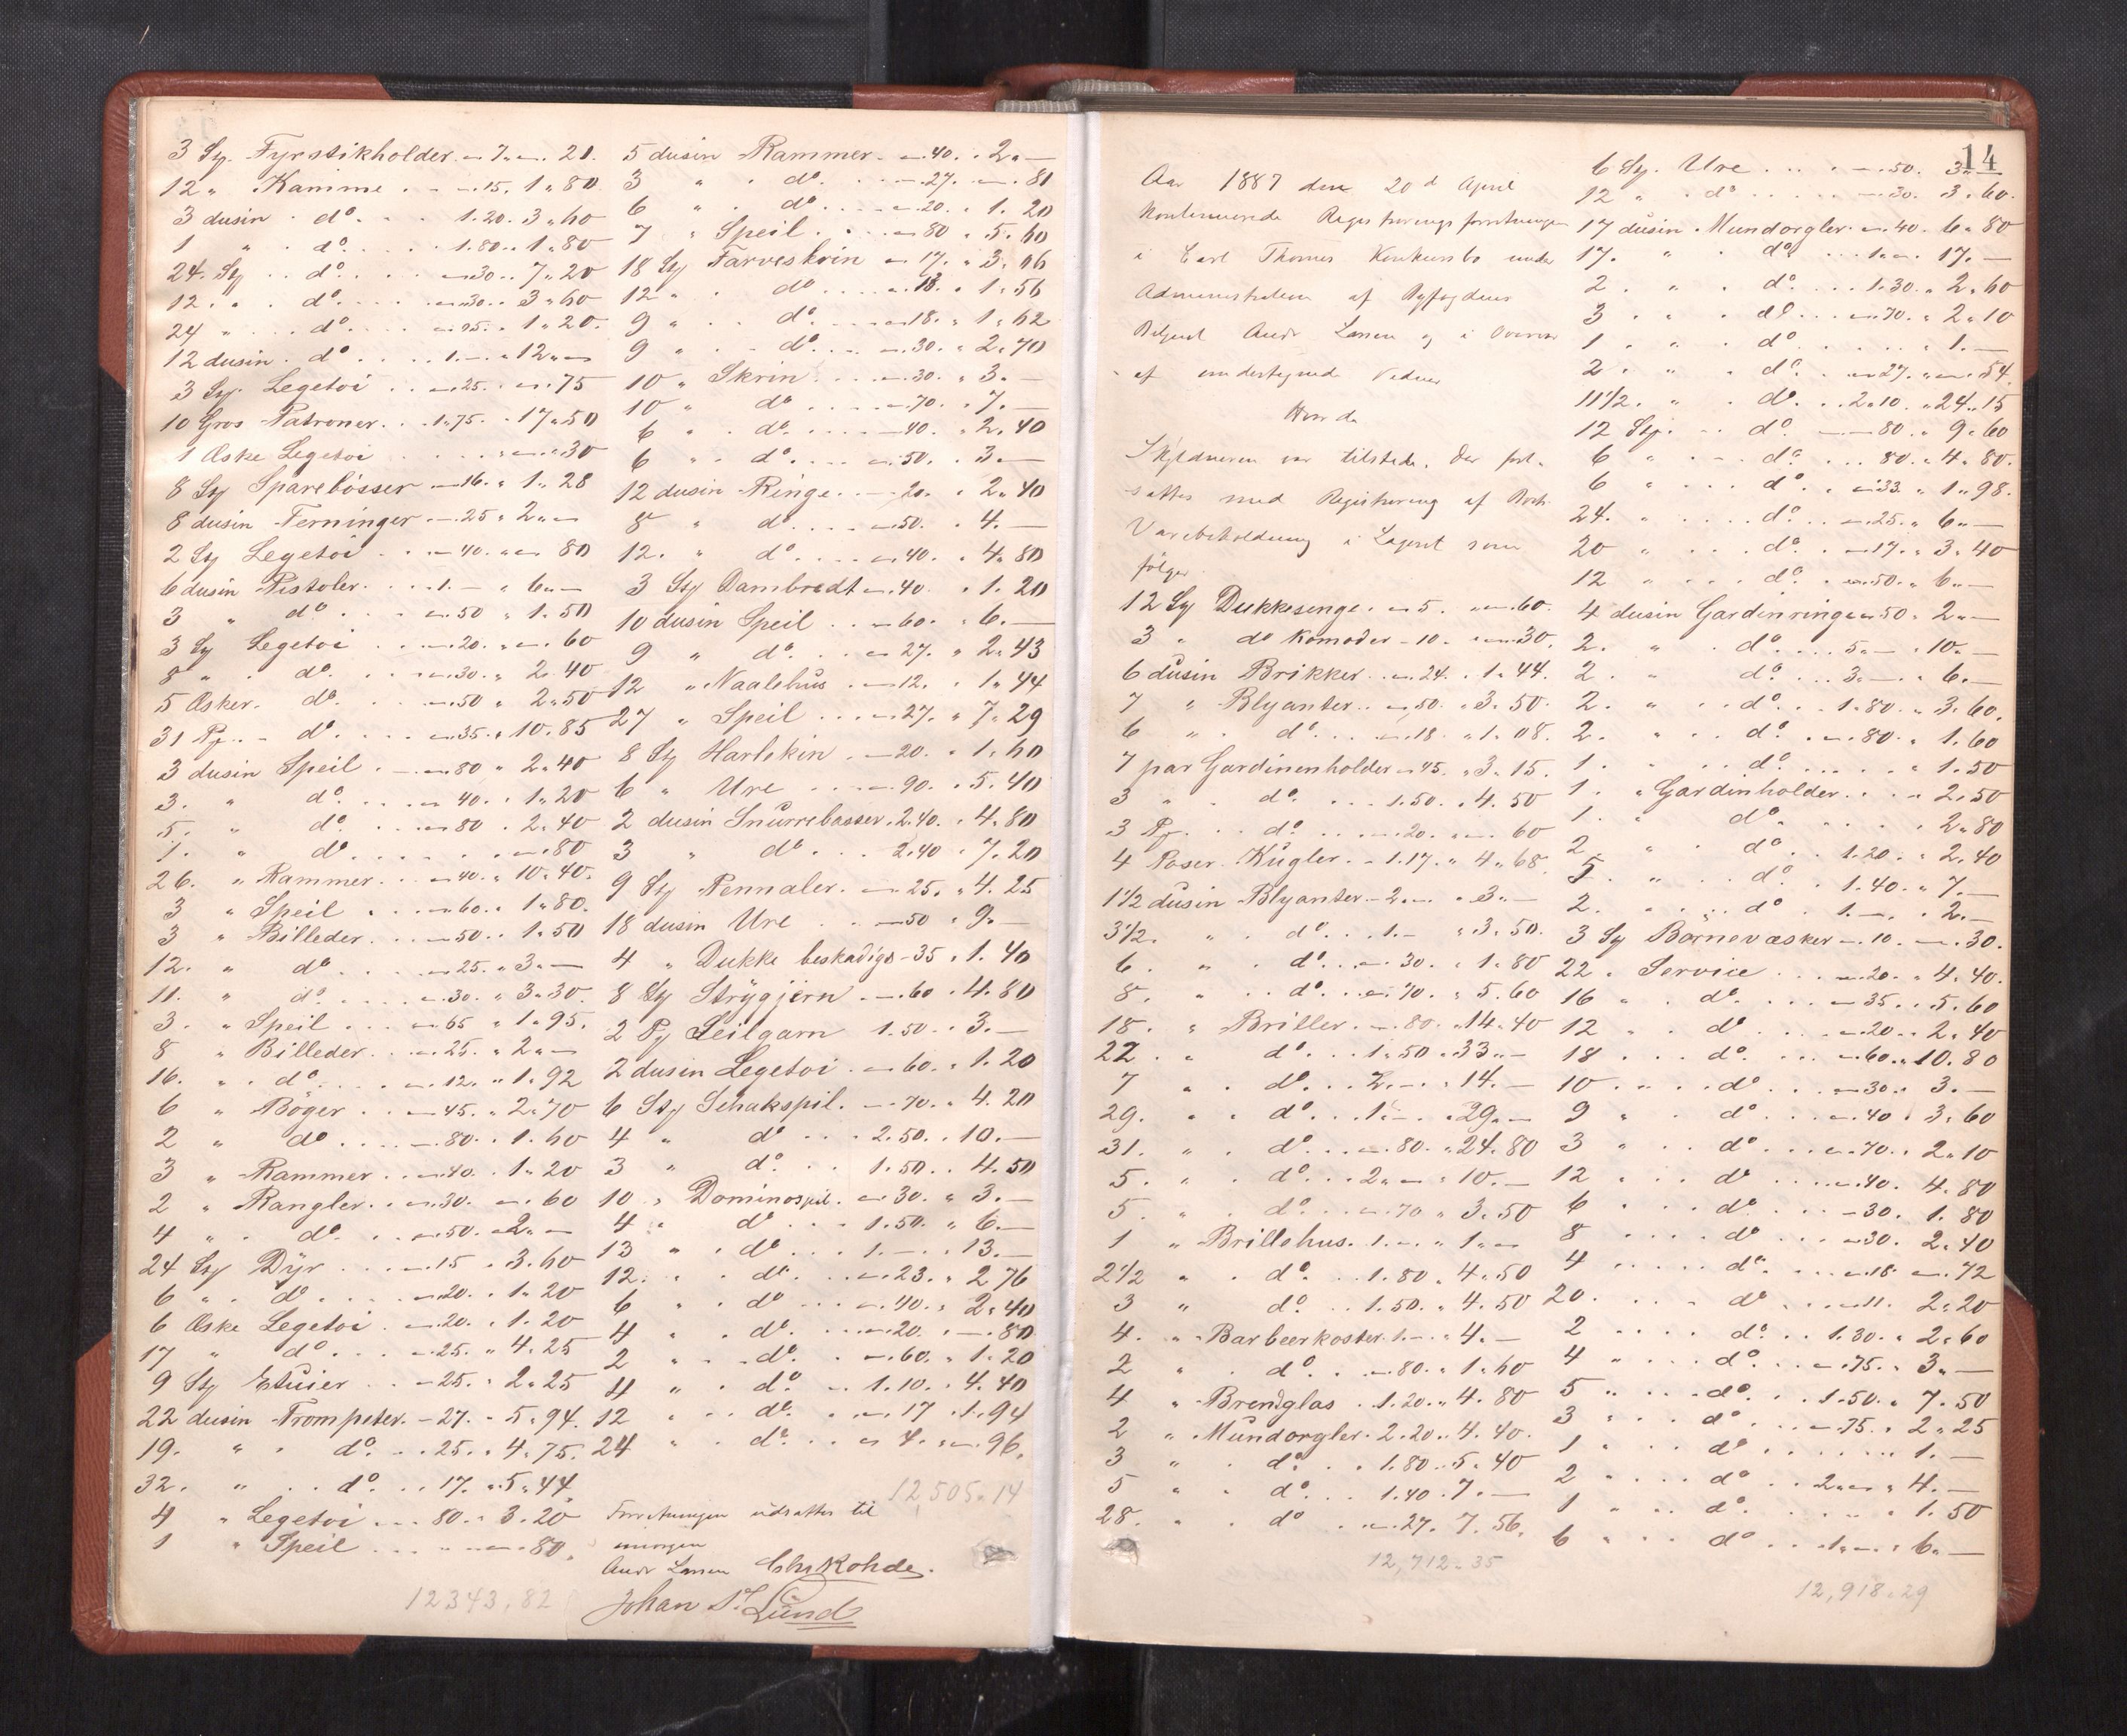 3 Sty. Fyrstikholder. " 7. " 21.
12 " Kamme . . " 15. 1 " 80
3 dusin . do . . . 1.20. 3 " 60
1 " . do . . . 1.80. 1 " 80
24. Sty . . do . . . " 30 . . 7 " 20
12. " . do . . . " 30 . . 3 " 60
24 " . . do . . . " 05. " 1 " 20.
12 dusin . do . . . 1. — " 12 " —
3 Sty. Legetoi . . " 25. " 75
10 Gros Patroner . . 1 " 75. " 17 " 50
1 Æske Legetoi . . . " 30
8 Sty Sparebösser " 16. " 1 " 28
8 dusin Terninger . " 25 " 2 " —
2 Sty Legetoi . . " 40. " 80
6 dusin Pistoler . . . 1. — " 6 " —
3 " do . . . " 50 " 1 " 50
3 Sty Legetoi . . " 20. " 60
8 " . do . . . " 30. " 2 " 40
5 Æsker. do . . . " 50 " 2 " 50
31 Pf . . do . . . " 35. " 10. 85
3 dusin Speil . . " 80 " 2 " 40
3. " do . . . " 40. " 1 " 20
5. " do . . . " 80 . 2 " 40
1. " do . . . . . " 80
26. " Rammer . . " 40. " 10 " 40.
3 " Speil . . " 60. " 1 " 80.
3 " Billeder . . . " 50 . . 1 " 50
12. " do . . . " 25. " 3 " —
11. " do . . . " 30. " 3 " 30.
3. " Speil . . . " 65 " 1 " 95.
8 " Billeder . . . " 25. " 2 " —
16. " . do . . . " 12. " 1 " 92
6 " Böger . . . " 45. " 2 " 70
2 " do . . . " 80. " 1. 60
3 " Rammer . . " 40. . 1 " 20
2 " Rangler . . " 30. " 60
4 " . do . . . " 50. " 2 " —
24 Sty Dyr . . . " 15 " 3. 60
6 " . do . . . " 20. " 1 " 20
6 Æske Legetoi . " 20. " 1. 20
17 " do . . . " 25. " 4. 25
9 Sty Etuier . . " 25. " 2 " 25
22 dusin Trompeter. " 27. " 5 " 94.
19. " . do . . . 25. " 4 " 75.
32. " . . do . . . 17. " 5 " 44
4 " Legetoi . . . 80. " 3. 20
1 " Speil . . . " 80.
12343,82
5 dusin Rammer. " 40. . 2 " —
3 " . do . . . " 27. " 81
6 " . do . . . " 20. " 1. 20
7 " Speil . . . " 80 " 5. 60
18 Sty Farveskrin " 17. " 3. 06
12 " . do . . . " 13. " 1 " 56
9 " . . do . . . " 18. " 1 " 62
9 " . . do . . . " 30. " 2. 70
10 " Skrin . . . " 30. " 3. —
10 " do . . . . " 70. " 7. —
6 " . do . . . . " 40. " 2. 40
6 " . . do . . . " 50. " 3. —
12 dusin Ringe . . " 20. " 2 " 40
8 " do . . . . " 50. " 4. —
12. " do . . . " 40. " 4 " 80
3 Sty Dambredt " 40. " 1. 20
10 dusin Speil . . " 60. " 6. —
9 " do . . . " 27. " 2 " 43
12 " Naalehus . . " 12. " 1 " 44
27 " Speil . . . " 27. " 7 " 29
8 Sty Harlekin . " 20. " 1 " 60
6 " Ure . . . " 90. " 5. 40
2 dusin Snurrebasser. 2.40. " 4 " 80
3 " do . . . 2.40 " 7. 20
9 Sty Pennaler . " 25. " 4. 25
18 dusin Ure . . " 50 " 9 " —
4 " Dukke beskadigs " 35 " 1. 40
8 Sty Strygjern . " 60 " 4. 80
2 Pf Seilgarn 1.50. " 3. —
2 dusin Legetoi . " 60. " 1. 20
6 Sty Schakspil . " 70. " 4. 20
4 " do . . . 2.50. " 10. —
3 " do . . . 1.50. . 4. 50
10 " Dominospil . " 30. " 3. —
4 " do . . . 1.50. " 6. —
13 " . do . . . 1. — . . 13. —
12. " . do . . . " 23. " 2 76
6 " . do . . . " 40. " 2 " 40
4 " . do . . . " 20. " 80
2 " . . do . . " 60. " 1 " 20
4 " . do . . . 1.10. . 4. 40
12 " . do . . . " 17 . 1. 94
24 " . do . . . " 4. " 96.
12,505 " 14
Forretningen udsattes til
imorgen
Andr Larsen Chr Rohde.
Johan S. Lund
14
Aar 1887 den 20d April
kontinuerede Registreringsforretningen
i Carl Thomes Konkursbo under
Administration af Byfogdens
Befuld. Andr Larsen og i Overvær
af undertegnede Vidner
Hvorda
Skyldneren var tilstede. Der fort-
sattes med Registrering af Boets
Varebeholdning i Lageret som
følger
12 Sty Dukkesenge . " 5. " 60.
3 " do Komoder " 10. " 30.
6 dusin Brikker . . " 24. " 1 " 44.
7 " Blyanter . . " 50. " 3 " 50.
6 " . do . . . " 18. " 1 " 08.
7 par Gardinenholder " 45. " 3 " 15.
3 " . do . . . 1.50. " 4. 50
3 Pf . . do . . . " 20. " 60
4 Poser Kugler . . 1.17. " 4 " 68.
1 1/2 dusin Blyanter . 2. — " 3 " —
3 1/2. " . do . . . 1. — " 3 " 50.
6. " . do . . . " 30. " 1 " 80
8. " . . do . . . " 70. " 5. 60
18. " Briller . . " 80. " 14 " 40
22. " do . . . 1 " 50 " 33 " —
7 " . do . . . 2. — " 14. —
29. " . do . . . 1. — " 29 " —
31. " . do . . . " 80. " 24. 80
5. " . do . . . 2 " — " 10. —
5. " . do . . . " 70 " 3. 50
1 " Brillehus . 1. — " 1 " —
2 1/2 " . do . . . 1.80 " 4 " 50
3 " do . . . 1.50. " 4. 50
4. " Barbeerkoster. 1. — " 4. —
2 " do . . . " 80. " 1 " 60
4 " Brendglas . 1.20. " 4. 80
2 " Mundorgler. 2.20. . 4. 40.
3 " . do . . . 1.80 " 5 " 40
5 " . do . . . 1.40 " 7. —
28. " . do . . . " 27. 7. 56.
12,712 " 35
6 Sty. Ure . . . . " 50. 3. —
12 " . do . . . " 30. 3 " 60.
17 dusin Mundorgler. " 40. 6 " 80
17. " . do . . . 1. — 17. —
2. " . do . . . 1.30. " 2 " 60
3 " . do . . . " 70. " 2 " 10
1 " . do . . . . " 1. —
2 " . do . . " 27. " 54.
11 1/2. " . do . . 2 " 10. " 24 " 15
12 Sty . . do . " 80. " 9 " 60
6 " . . . do . . . 80. " 4 " 80.
6 " . . do . . " 33. " 1 " 98.
24. " . . . do . . . " 25. " 6 " —
20 " . . do . . " 17. " 3. 40
12 " . . do . . " 50. " 6 " —
4 dusin Gardinringe " 50 " 2 " —
2. " . do . . . 5. — " 10. —
2. " do . . . 3. — " 6. —
2. " . do . . . 1 " 80. " 3. 60.
2. " . do . . . " 80. " 1. 60
1. " . do . . . . " 1. 50
1. " Gardinholder . . . " 2. 50
1. " do . . . . " 2 " 80
2. " . do . . . 1.20. " 2. 40
5 " . . do . . 1.40. " 7. —
2. " . . do . . 1. — . " 2. —
3 Sty Barnevæsker " 10. " 30.
22 " Service . . . " 20. " 4. 40.
16 " . do . . . " 35 . . 5. 60
12 " . do . . . " 20 . . 2 " 40
18 " . do . . . " 60. " 10. 80
10 " . do . . . " 30. " 3. —
9 " . do . . . " 40. " 3. 60
3 " . do . . . " 70. " 2 " 10
12 " . do . . . " 40. 4. 80
6 " . do . . . " 30. 1. 80
8 " . do . . . " 30. 2. 40
4 " . . do . . . " 18. " 72
20. " . do . . . " 11. 2 " 20
2 " . . do . . 1.30. " 2 " 60
4 " . . do . . . " 75. " 3 " —
5 " . . do . . . 1.50. " 7. 50
3 " . . do . . . " 75. " 2 " 25
1 " . . do . . . . . 1. —
2 " . . . do . . 2 " — " 4. —
1 " . . do . . . . " 1. 50
6 " . . do . . . 1. — " 6. —
12,918 " 29